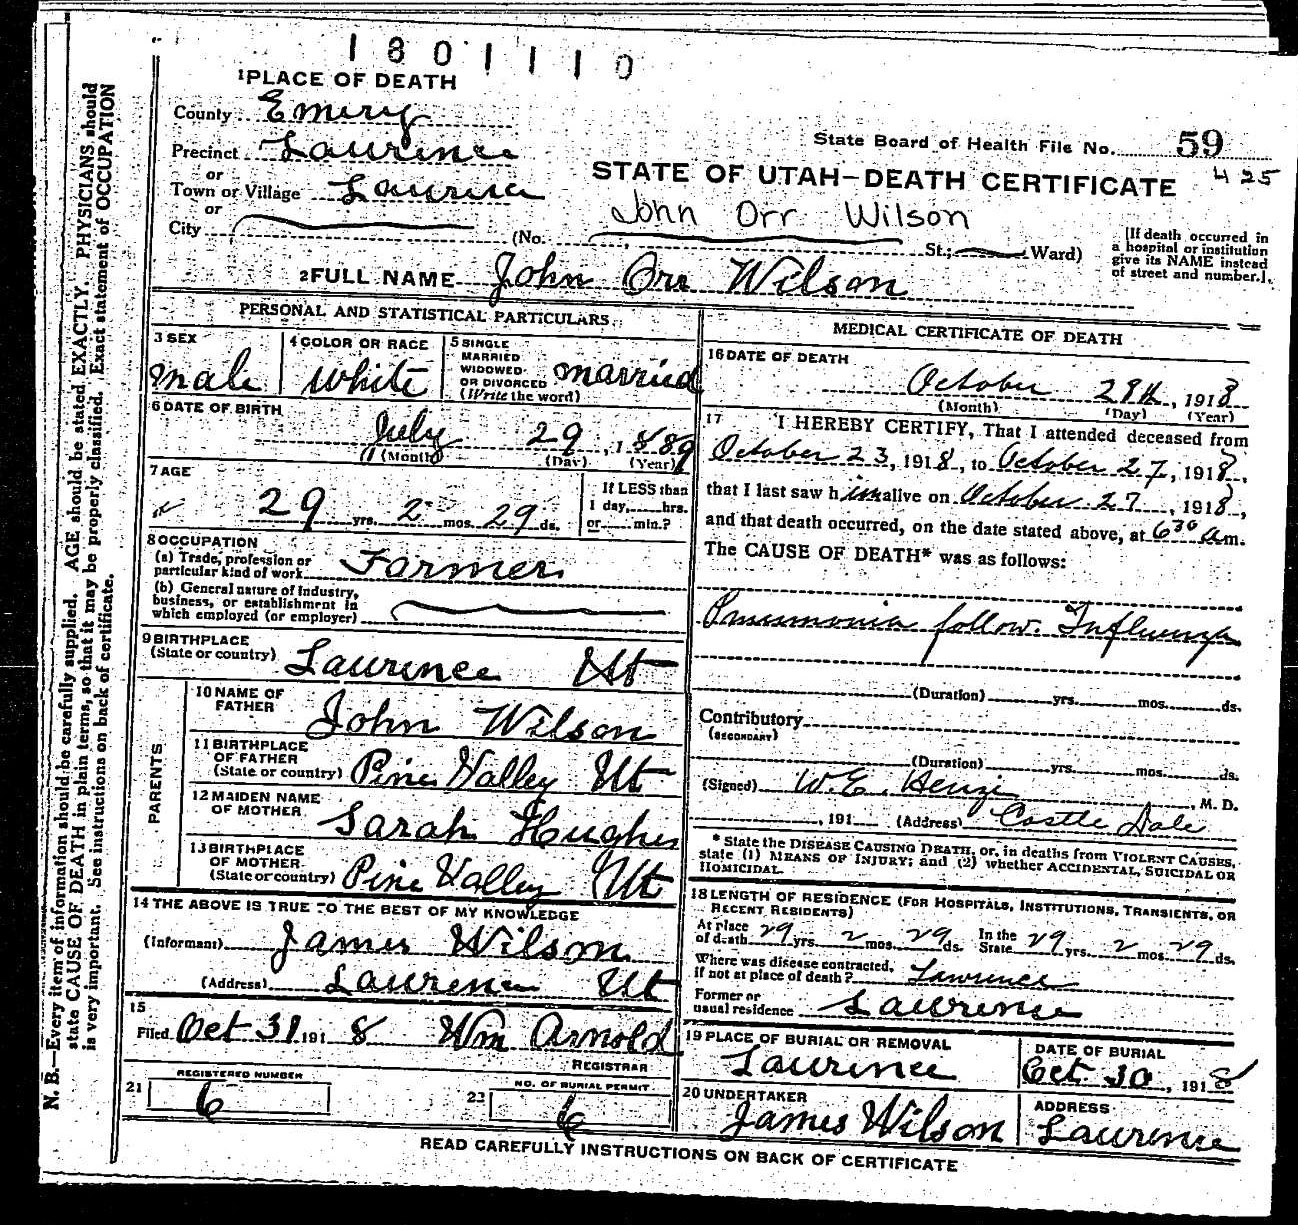 1801110
1 PLACE OF DEATH
County Emery
State Board of Health File No. 59
Precinct Lawrence
425
or
STATE OF UTAH—DEATH CERTIFICATE
Town or Village Lawrence
or
John Orr Wilson
City
(No. St.; Ward)
[If death occurred in a hospital or institution give its NAME instead of street and number.]
2 FULL NAME John Orr Wilson
PERSONAL AND STATISTICAL PARTICULARS
3 SEX
male
4 COLOR OR RACE
White
5 SINGLE
MARRIED
WIDOWED
OR DIVORCED
(Write the word)
married
6 DATE OF BIRTH
July 29, 1889
(Month) (Day) (Year)
7 AGE
29 yrs. 2 mos. 29 ds.
If LESS than
1 day, hrs.
or min.?
8 OCCUPATION
(a) Trade, profession or
particular kind of work Farmer
(b) General nature of industry,
business, or establishment in
which employed (or employer)
9 BIRTHPLACE
(State or country) Lawrence Ut
PARENTS
10 NAME OF
FATHER John Wilson
11 BIRTHPLACE
OF FATHER
(State or country) Pine Valley Ut
12 MAIDEN NAME
OF MOTHER Sarah Hughes
13 BIRTHPLACE
OF MOTHER
(State or country) Pine Valley Ut
14 THE ABOVE IS TRUE TO THE BEST OF MY KNOWLEDGE
(Informant) James Wilson
(Address) Lawrence Ut
15
Filed Oct 31 1918 Wm Arnold
REGISTRAR
21 REGISTERED NUMBER
6
22 NO. OF BURIAL PERMIT
6
MEDICAL CERTIFICATE OF DEATH
16 DATE OF DEATH
October 28th, 1918
(Month) (Day) (Year)
17 I HEREBY CERTIFY, That I attended deceased from
October 23, 1918, to October 27, 1918,
that I last saw him alive on October 27, 1918,
and that death occurred, on the date stated above, at 6 30 a m.
The CAUSE OF DEATH* was as follows:
Pneumonia follow. Influenza
(Duration) yrs. mos. ds.
Contributory
(SECONDARY)
(Duration) yrs. mos. ds.
(Signed) W.E. , M. D.
, 191 (Address) Castle Dale
* State the DISEASE CAUSING DEATH, or, in deaths from VIOLENT CAUSES,
state (1) MEANS OF INJURY; and (2) whether ACCIDENTAL, SUICIDAL OR
HOMICIDAL.
18 LENGTH OF RESIDENCE (FOR HOSPITALS, INSTITUTIONS, TRANSIENTS, OR
RECENT RESIDENTS)
At place
of death 29 yrs. 2 mos. 29 ds. In the State 29 yrs. 2 mos. 29 ds.
Where was disease contracted,
if not at place of death? Lawrence
Former or
usual residence Lawrence
19 PLACE OF BURIAL OR REMOVAL
Lawrence
DATE OF BURIAL
Oct. 30, 1918
20 UNDERTAKER
James Wilson
ADDRESS
Lawrence
READ CAREFULLY INSTRUCTIONS ON BACK OF CERTIFICATE
N. B.—Every item of information should be carefully supplied. AGE should be stated EXACTLY. PHYSICIANS should
state CAUSE OF DEATH in plain terms, so that it may be properly classified. Exact statement of OCCUPATION
is very important. See instructions on back of certificate.